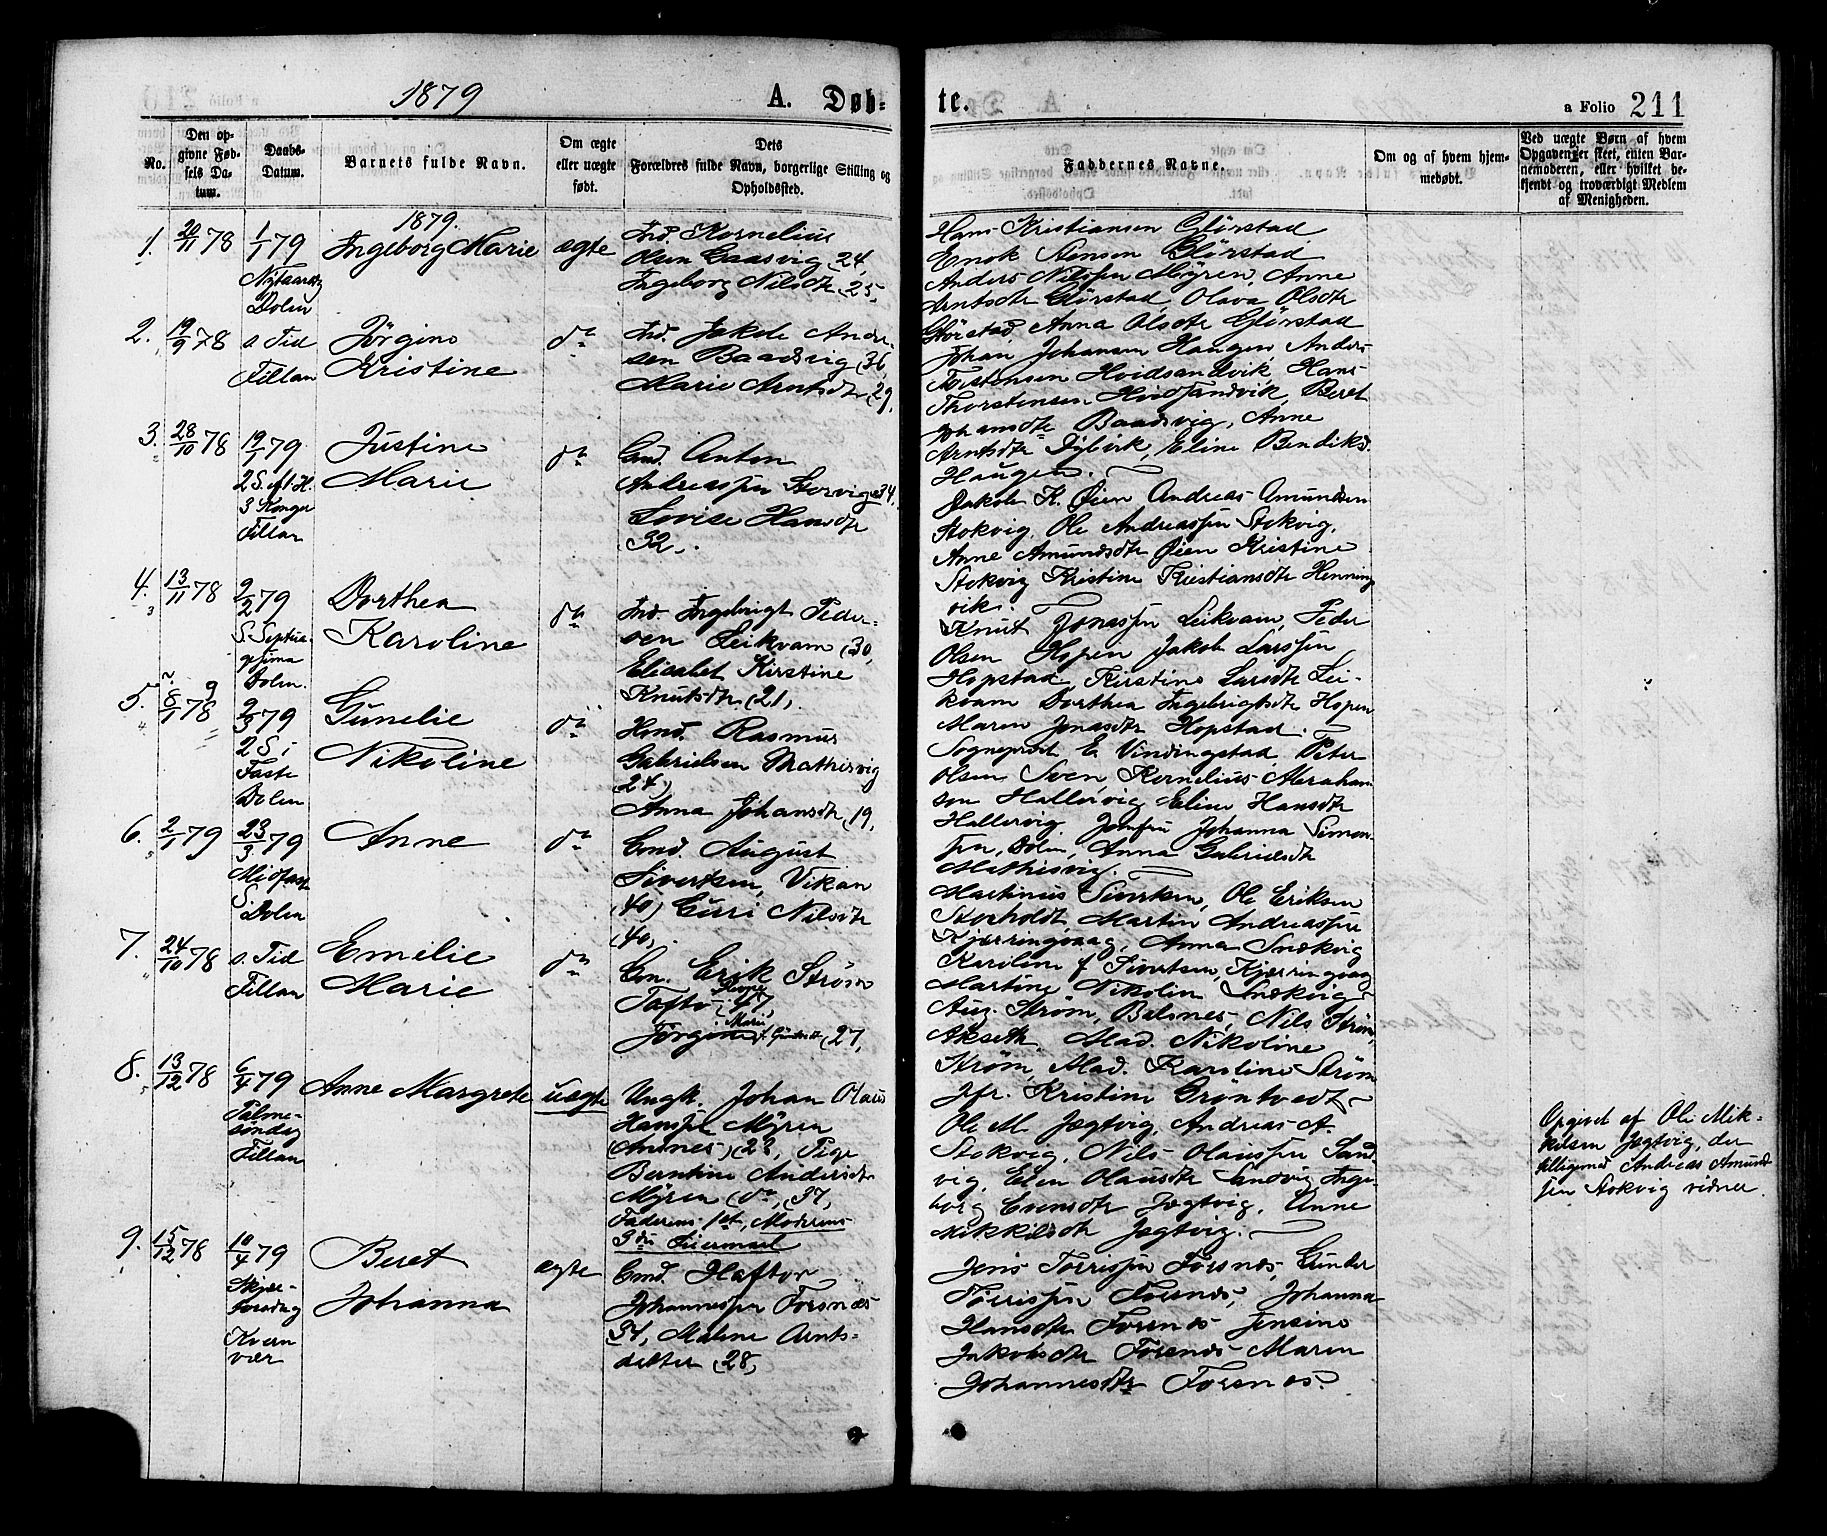 1879
A. Døb-
te.
a Folio 211
No.
Den op-
givne Fød-
sels Da-
tum.
Daabs-
Datum.
Barnets fulde Navn.
Om ægte
eller uægte
født.
Dets
Forældres fulde Navn, borgerlige Stilling og
Opholdssted.
Faddernes Navne.
Om og af hvem hjem-
medøbt.
Ved uægte Børn af hvem
Opgaven er skeet, enten Bar-
nemoderen, eller hvilket be-
kjendt og troværdigt Medlem
af Menigheden.
1879.
1. 20/11 78
1/1 79
Nytaarsdg
Dolm
Ingeborg Marie
ægte
Ind. Kornelius
Olsen Gaasvig (24,
Ingeborg Nilsdtr (25,
Hans Kristiansen Glørstad
Enok Jensen Glørstad
Anders Nilssen Myren, Anne
Arntsdtr Glørstad, Olava Olsdtr
Glørstad, Anna Olsdtr Glørstad
2. 19/9 78
s. Tid
Fillan
Jørgine
Kristine
do
Ind. Jakob Andr-
sen Baadsvig (36,
Marie Arntsdtr (29,
Johan Johansen Haugen Anders
Torstensen Hvidsandvik Hans
Thorstensen Hvidsandvik, Beret
Johansdtr Baadsvig, Anne
Arntsdtr Dybvik, Eline Bendiksd
Haugen.
3. 28/10 78
19/1 79
2 S. e. f. H.
3 Konger
Fillan
Justine
Marie
do
Gmd. Anton
Andreassen Storvig 34,
Lovise Hansdtr
32.
Jakob K. Øien Andreas Amundsen
Stokvig, Ole Andreassen Stokvig,
Anne Amundsdtr Øien Kristine
Stokvig Kristine Kristiansdtr Henning
vik.
4. 13/11 78
9/2 79
S. Septua-
gesima
Dolm.
Dorthea
Karoline
do
Ind. Ingebrigt Peder-
sen Leikvam (30,
Elisabet Kirstine
Knutsdtr (21,
Knut Jonassen Leikvam, Peder
Olsen Hopen Jakob Larssen
Hopstad Kirstine Larsdtr Lei-
kvam Dorthea Ingebrigtsdtr Hopen
Maren Jonasdtr Hopstad.
5. 8/1 79
9/3 79
2 S. i
Faste
Dolm
Gunelie
Nikoline
do
Hmd. Rasmus
Gabrielsen Mathisvig
(24)
Anna Johansdtr (19,
Sogneprest E. Vindingstad, Peter
Olsen Sven Kornelius Abraham
son Hallervig Eline Hansdtr
Hallervig, Jomfru Johanna Simon-
sen, Dolm, Anna Gabrielsdtr
Mathisvig.
6. 2/1 79
23/3 79
Midfaste
S. Dolm
Anne
do
Gmd. August
Sivertsen, Vikan
(40) Guri Nilsdtr
(40,
Martinus Sivertsen, Ole Eriksen
Storholdt, Martin Andreassen
Kjerringvaag, Anna Snekvig
Karolin f Sivertsen, Kjerringvaag
Martine Nikolin Snekvig
7. 24/10 78
s. Tid
Fillan
Emelie
Marie
do
Gm. Erik Strøm
Tafto 47,
Jørgine Marie (27,
Aug. Strøm, Belsnes, Nils Strøm,
Akseth, Mad. Nikoline
Strøm, Mad. Karoline Strøm
Jfr. Kristine Grøntvedt
8. 13/12 78
6/4 79
Palme-
søndag
Fillan
Anne Margrete
uægte
Ungk. Johan Olaus
Hanssen Myren
Annes) (23, Pige
Berntine Andersdtr
Myren (do, 37,
Faderens 1ste, Moderens
3die Leiermaal
Ole M. Jægtvig, Andreas A.
Stokvig, Nils Olaussen Sand
vig, Elen Olausdtr Sandvig Inge-
borg Evensdtr Jægtvig, Anne
Mikkelsdtr Jægtvig.
Opgivet af Ole Mik-
kelsen Jægtvig, der
tilligemed Andreas Amund
sen Stokvig vidner
9. 15/12 78
10/4 79
Skjær-
torsdag
Kvern
vær
Beret
Johanna
ægte
Gmd. Haftor
Johannessen Forsnes
34, Malene Arnts-
datter (28,
Jens Torrissen Forsnes, Gunder
Torrissen Forsnes, Johanna
Hansdtr Forsnes Jensine
Jakobsdtr Forsnes Maren
Johannesdtr Forsnes.